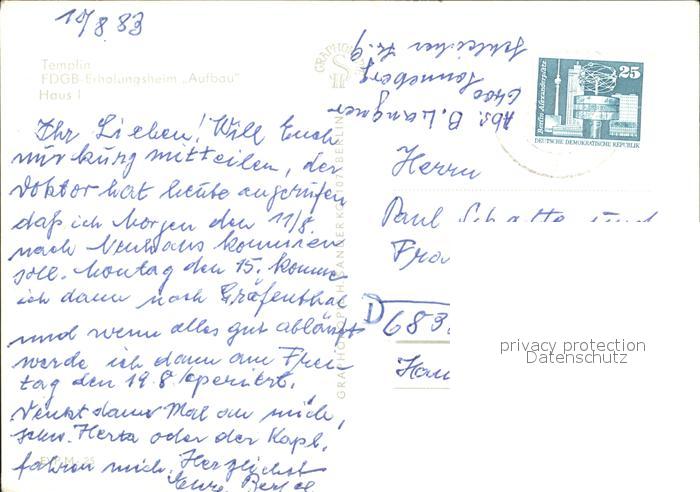 10/8.83
Templin
FDGB-Erholungsheim „Aufbau"
Haus I
Ihr Lieben! Will Euch
nur kurz mitteilen, der
Doktor hat heute angerufen
daß ich Morgen den 11/8.
nach Neuhaus kommen
soll. Montag den 15. komme
ich dann nach Gräfenthal
und wenn alles gut abläuft
werde ich dann am Frei
tag den 19.8. operiert.
Denkt dann Mal an mich,
schw. Herta oder der Kapl.
fahren mich. Herzlichst
Eure
Abs. B. Langner
6400 Sonneberg
25
Berlin-Alexanderplatz
DEUTSCHE DEMOKRATISCHE REPUBLIK
Herrn
Paul Schatte und
Fra
D 683
Hau
privacy protection
Datenschutz